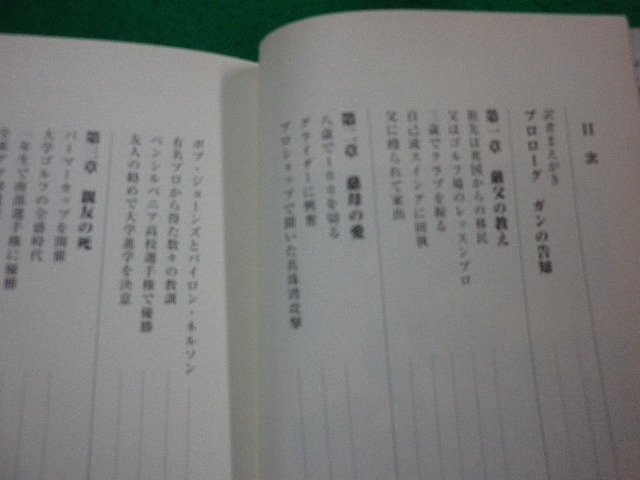 目次
訳者まえがき
プロローグ ガンの告知
第一章 厳父の教え
祖先は英国からの移民
父はゴルフ場のレッスンプロ
三歳でクラブを握る
自己流スイングに固執
父に殴られて家出
第二章 慈母の愛
八歳で100を切る
グライダーに興奮
プロショップで聞いた真珠湾攻撃
ボブ・ジョーンズとバイロン・ネルソン
有名プロから得た数々の教訓
ペンシルベニア高校選手権で優勝
友人の勧めで大学進学を決意
第三章 親友の死
パーマーカップを開催
大学ゴルフの全盛時代
一年生で南部選手権に優勝